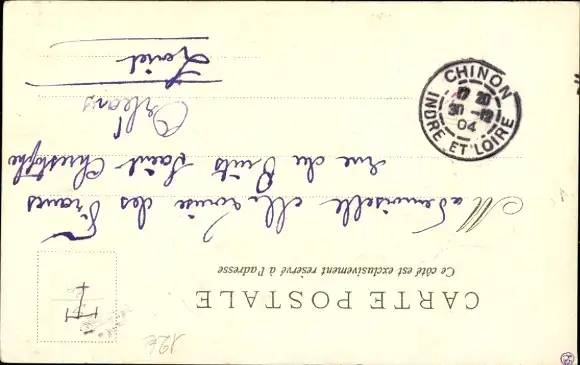 CARTE POSTALE
Ce côté est exclusivement réservé à l'adresse
Mademoiselle Marie Louise des Francs
rue du Puits Saint Christophe
Orléans
Loiret
CHINON
17 20
30 -12
04
INDRE ET LOIRE
T
12€